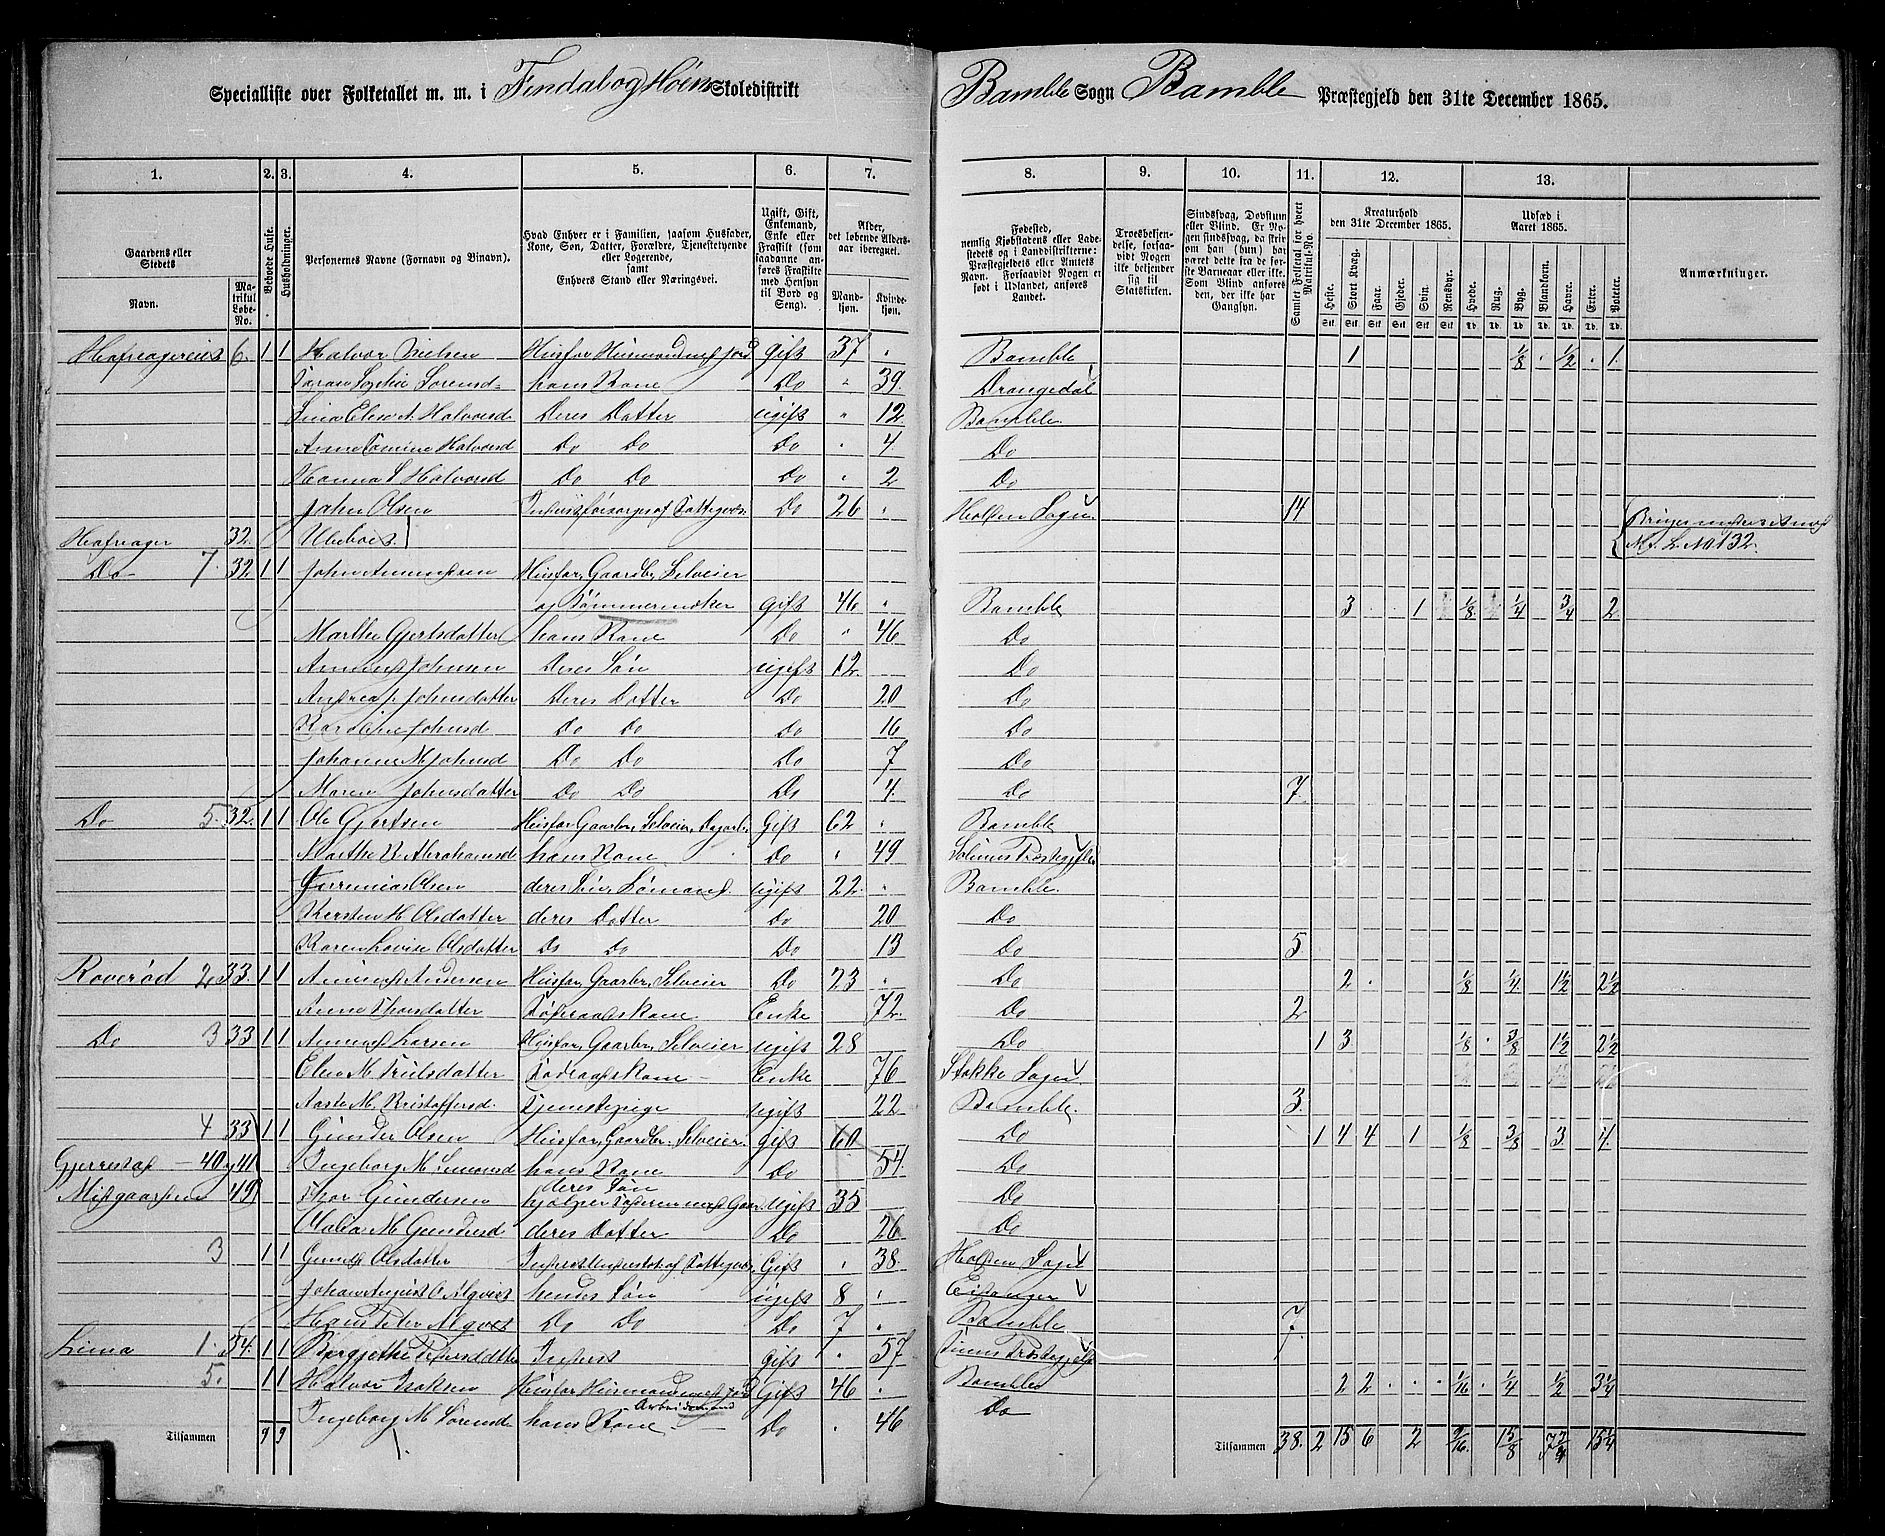 Specialliste over Folketallet m. m. i Findal og Hoën Skoledistrikt Bamble Sogn Bamble Præstegjeld den 31te December 1865.
1. 2. 3. 4. 5. 6. 7. 8. 9. 10. 11. 12. 13.
Gaardens eller Stedets
Navn.
Matrikul Løbe-No.
Beboede Huse.
Husholdninger.
Personernes Navne (Fornavn og Binavn).
Hvad Enhver er i Familien, saasom Husfader, Kone, Søn, Datter, Forældre, Tjenestetyende eller Logerende, samt Enhvers Stand eller Næringsvei.
Ugift, Gift, Enkemand, Enke eller Fraskilt (som saadanne anføres Fraskilte med Hensyn til Bord og Seng).
Alder, det løbende Alders-aar iberegnet.
Mandkjøn. Kvindekjøn.
Fødested, nemlig Kjøbstadens eller Ladestedets og i Landdistrikterne: Præstegjeldets eller Amtets Navn. Forsaavidt Nogen er født i Udlandet, anføres Landet.
Troesbekjendelse, forsaavidt Nogen ikke bekjender sig til Statskirken.
Sindssvag, Døvstum eller Blind. Er Nogen sindssvag, da skriv om han (hun) har været dette fra de første Barneaar eller ikke. Som Blind anføres den, der ikke har Gangsyn.
Samlet Folketal for hvert Matrikuls-No.
Kreaturhold den 31te December 1865.
Heste. Stort Kvæg. Faar. Gjeder. Svin. Rensdyr.
Udsæd i Aaret 1865.
Hvede. Rug. Byg. Blandkorn. Havre. Erter. Poteter.
Anmærkninger.
6. 1 1 Halvor Nielsen Husfar Husmand med Jord Gift 37 Bamble 1 1/8 1/2 1
Sørensd hans Kone Do 39. Drangedal
Halvorsd Deres Datter Ugift 12 Bamble
Halvorsd Do Do Do 4. Do
Hanna Halvorsd Do Do Do 2 Do
John Olsen Do 26 Holden Sogn 14
Hafsager 32.
Mt. L. No 132
Do 7. 32 1 1 John Amundsen Husfar, Gaardbr, Selveier
og Tømmermæker Gift 46 Bamble 3 1 1/8 1/4 3/4 2
Marthe Gjertsdatter hans Kone Do 46 Do
Amund Johnsen Deres Søn Ugift 12 Do
Andrea Johnsdatter Deres Datter Do 20 Do
Karoline Johnsd Do Do Do 16 Do
Johanne M Johnsd Do Do Do 7 Do
Maren Johnsdatter Do Do Do 4. Do 7.
Do 5. 32. 1 1 Ole Gjertsen Husfar, Gaardbr, Selveier, Gift 62 Bamble
Marthe K Abrahamsd hans Kone Do 49
Jerremias Olsen deres Søn Sømand Ugift 22. Bamble
Kersten H. Olsdatter deres Datter Do 20 Do
Karen Lovise Olsdatter Do Do Do 13 Do 5
Roverød 2 33. 1 1 Amund Andersen Husfar, Gaardbr, Selveier Do 23 Do 2 1/8 1/4 1 1/2 2 1/2
Anne Føderaadskone Enke 72. Do 2
Do 3 33 1 1 Amund Larsen Husfar, Gaardbr, Selveier Ugift 28 Do 1 3 1/8 3/8 1 1/2 2 1/2
Elen M. Truelsdatter Føderaadskone Enke 76 Stokke Sogn
Aaste M. Kristoffersd. Tjenestepige Ugift 22 Bamble. 3.
4 33 1 1 Gunder Olsen Husfar, Gaardbr. Selveier Gift 60 Do 1 4 4 1 1/8 3/8 3. 4.
40 41 Ingeborg M. Simonsd hans Kone Do 54. Do
Midgaarden 49 Thor Gundersen deres Søn Ugift 35 Do
M. Gundersd deres Datter Do 26 Do
3 1 1 Olsdatter Gift 38. Holden Sogn
Johan August hendes Søn Ugift 8 Eidanger
Hans Peter Do Do Do 7 Bamble 7
1. 54. 1 1 Inderst Gift 57
5. 1 1 Halvor Isaksen Husfar Husmand med Jord Gift 46 Bamble 2 2 1/16 1/4 1/2 3 1/4
Arbeidsmand
Ingeborg M. Sørensd hans Kone Do 46 Do
Tilsammen 9 9 Tilsammen 38. 2 15 6 2 9/16 1 5/8 15 1/4